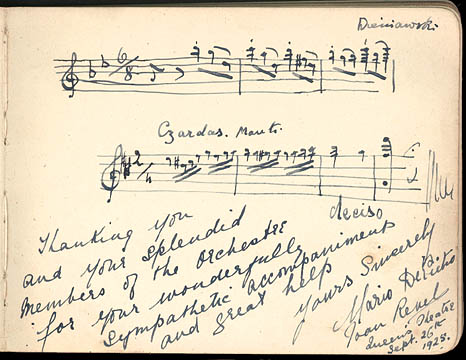 Czardas. Monti.
deciso
Thanking you
and your splendid
members of the Orchestre
for your wonderfully
sympathetic accompaniments
and great help
yours sincerely
Mario
Queens Theatre
Sept. 26th
1925.